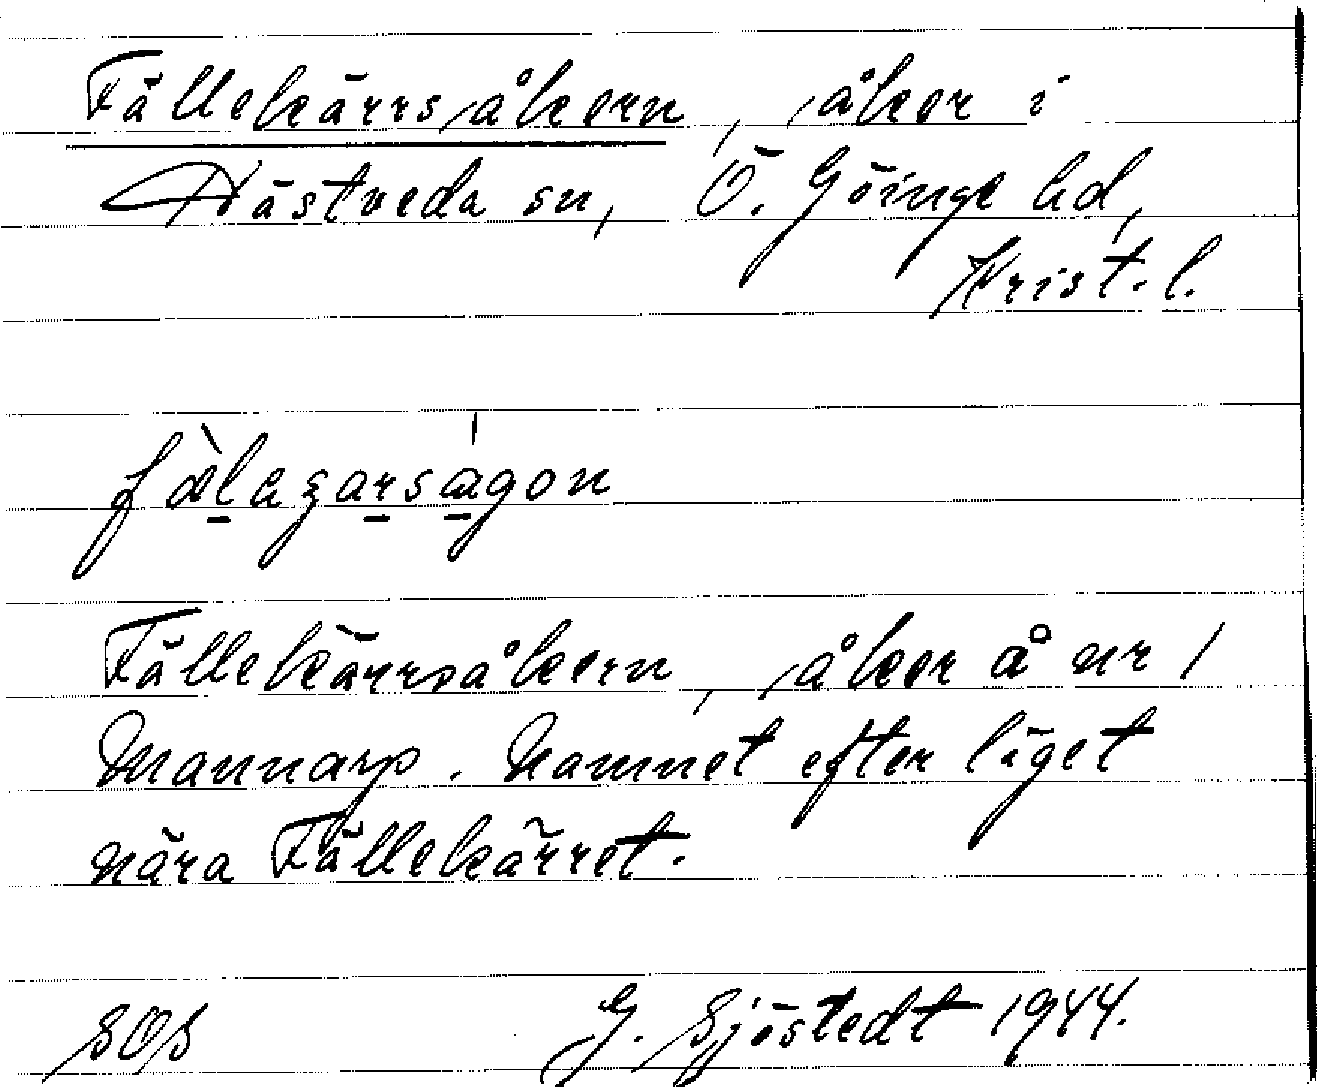 Fällekärrsåkern, åker i
Hästveda sn, Ö. Göinge hd,
Krist. l.
Fällekärrsåkern, åker å nr 1
Mannarp. Namnet efter läget
nära Fällekärret.
SOS G. Sjöstedt 1944.